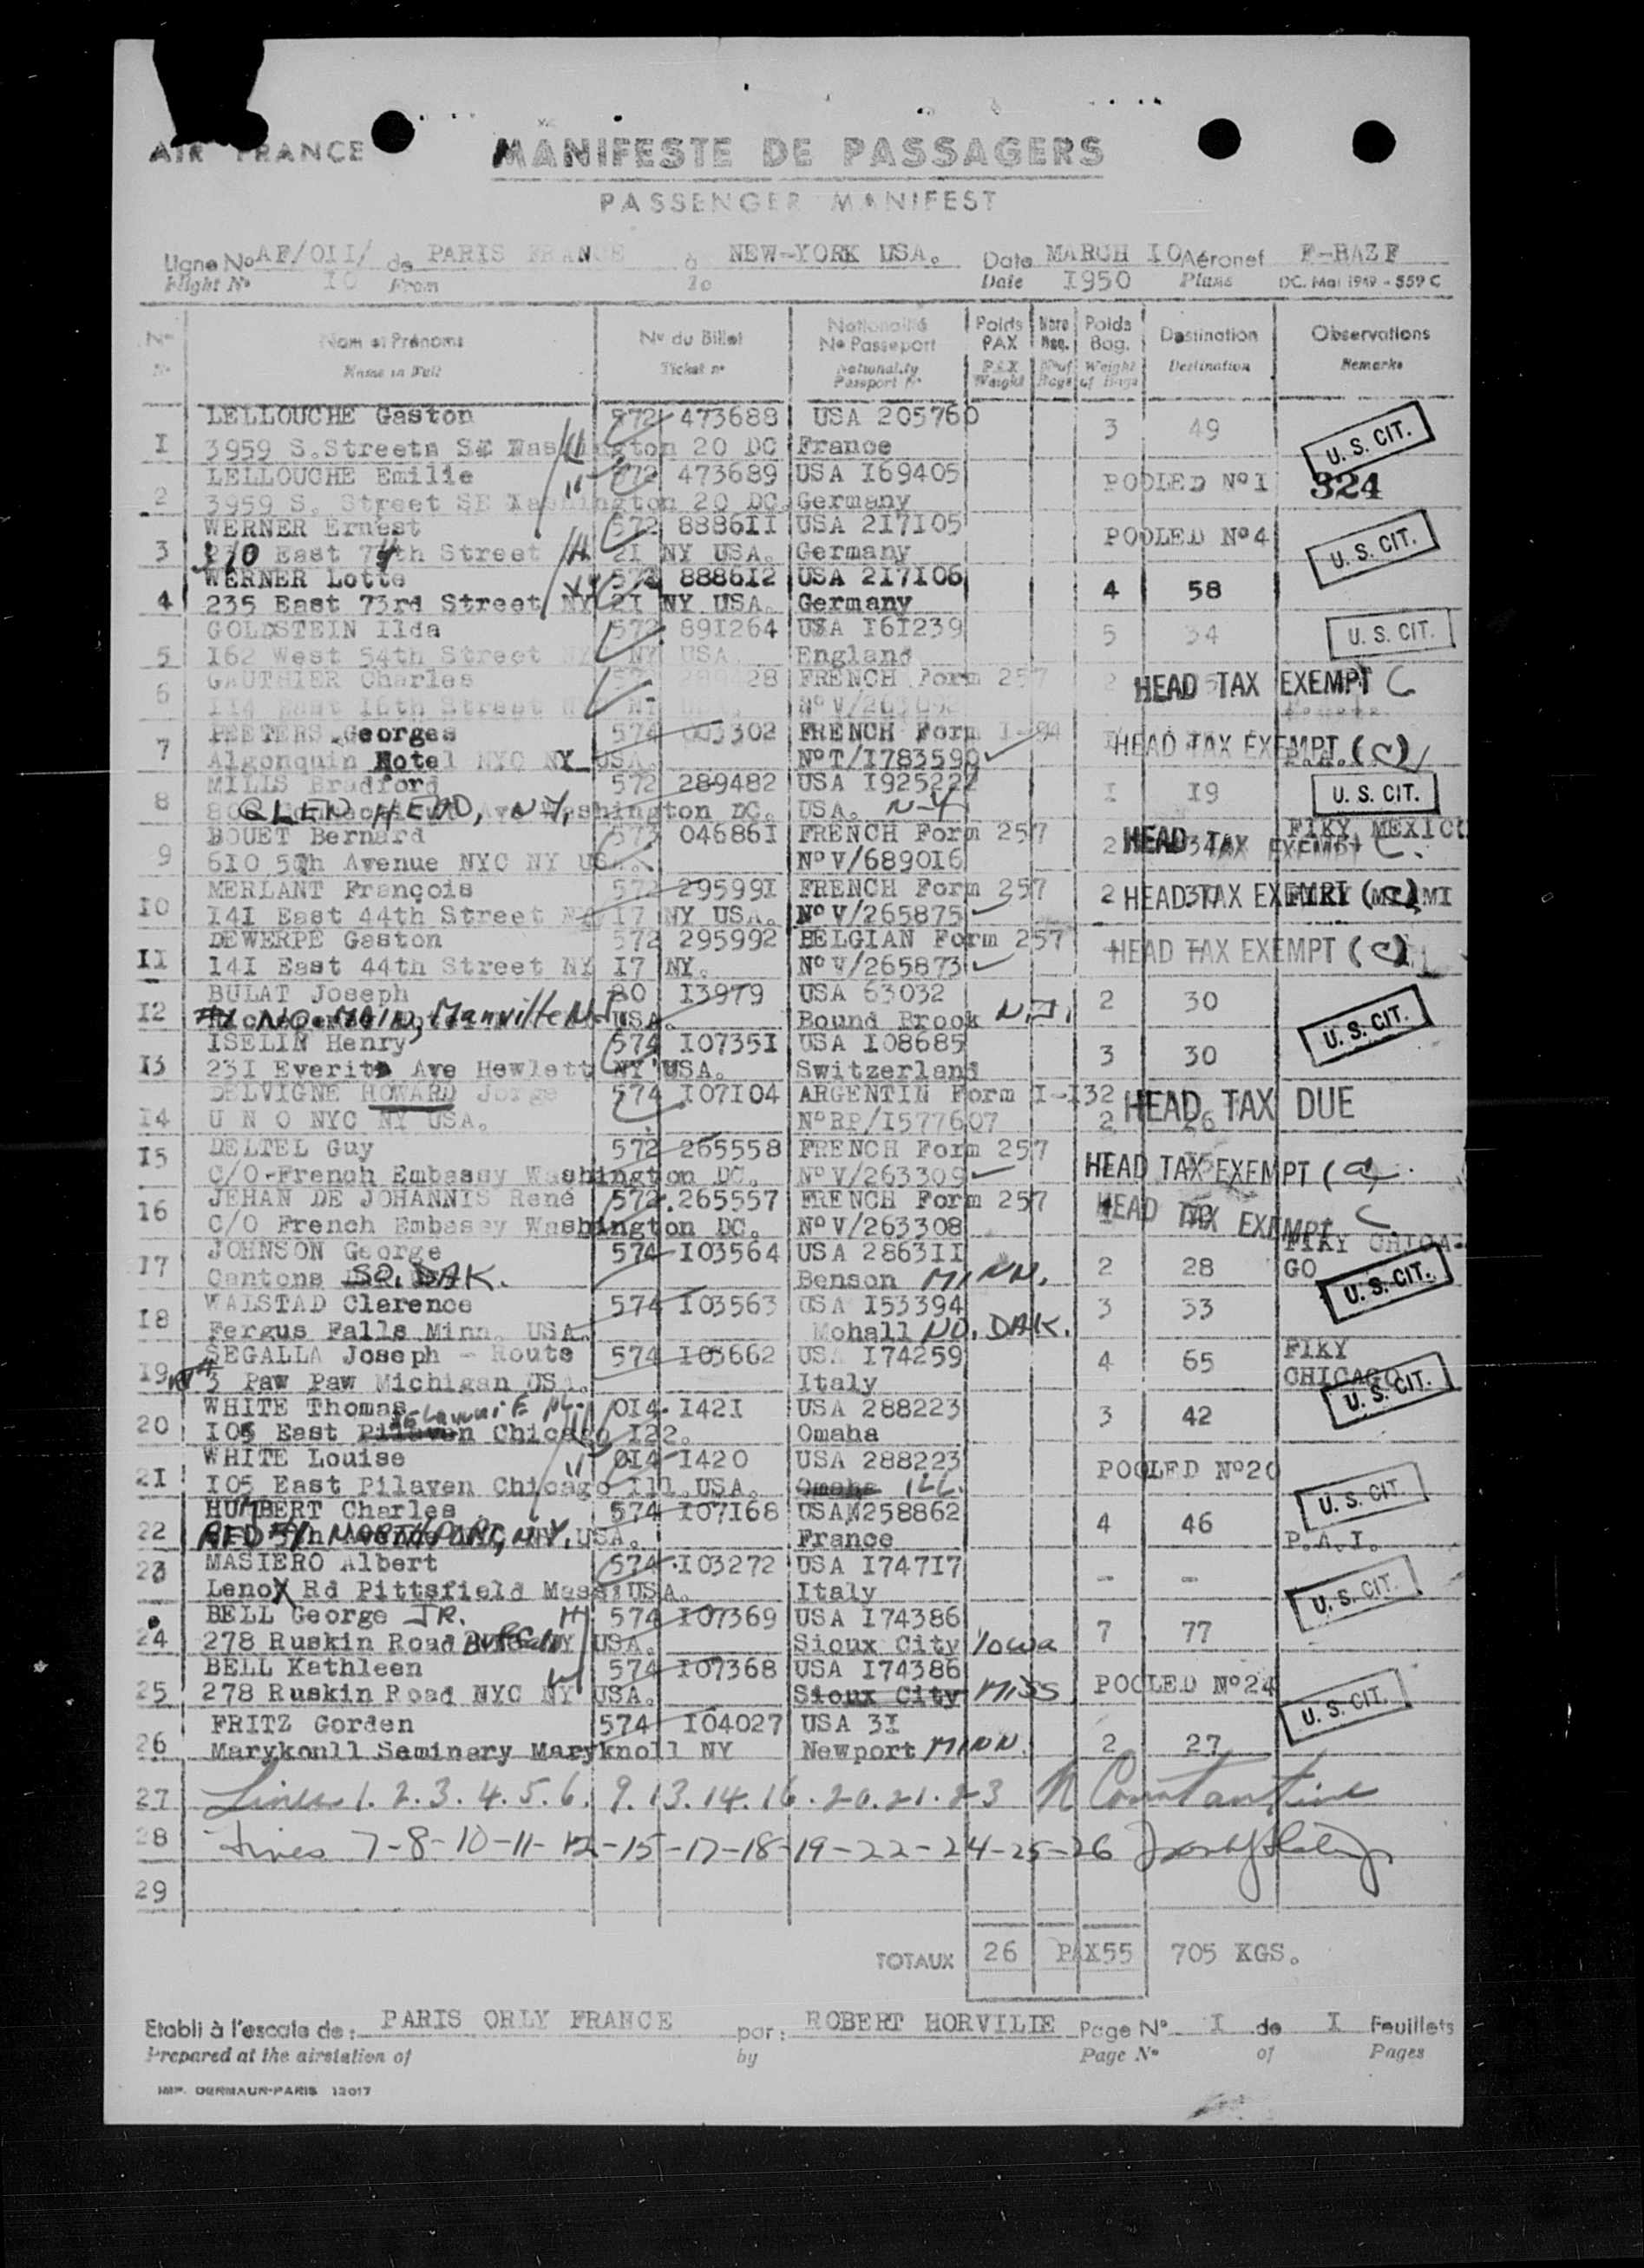 AIR FRANCE
MANIFESTE DE PASSAGERS
PASSENGER MANIFEST
Ligne No AF/OII/ de PARIS FRANCE à NEW-YORK USA. Date MARCH IO Aéronef F-BAZF
Flight No IO From To Date I950 Plane DC. Mai 1949 - 559 C
No Nom et Prénoms No du Billet Nationalité No Passeport Poids PAX Nbre Bag. Poids Bag. Destination Observations
No Name in Full Ticket no Nationality Passport No PAX Weight Nb of Bags Weight of Bags Destination Remarks
LELLOUCHE Gaston 572 473688 USA 205760
I 3959 S.Streets SE Washington 20 DC France 3 49 U. S. CIT.
LELLOUCHE Emilie 572 473689 USA I69405
2 3959 S. Street SE Washington 20 DC Germany POOLED No I 324
WERNER Ernest 572 8886II USA 2I7I05
3 210 East 74th Street 2I NY USA. Germany POOLED No 4 U. S. CIT.
WERNER Lotte 572 8886I2 USA 2I7I06
4 235 East 73rd Street NY 2I NY USA. Germany 4 58
GOLDSTEIN Ilda 572 89I264 USA I6I239
5 I62 West 54th Street NY NY USA. England 5 34 U. S. CIT.
GAUTHIER Charles 28 FRENCH Form 257
6 II4 East I6th Street NY HEAD TAX EXEMPT C
PEETERS Georges 574 003302 FRENCH Form I-94
7 Algonquin Hotel NYC NY USA. No T/I783590 HEAD TAX EXEMPT (C)
MILLS Bradford 572 289482 USA I925222
8 GLEN HEAD, NY, Washington DC. USA. N-Y I I9 U. S. CIT.
BOUET Bernard 573 04686I FRENCH Form 257 FIKY MEXICO
9 6IO 5th Avenue NYC NY USA. No V/6890I6 2 34 HEAD TAX EXEMPT C.
MERLANT François 572 29599I FRENCH Form 257
IO I4I East 44th Street NY I7 NY USA. No V/265875 2 HEAD TAX EXEMPT (C) FIKY MIAMI
DEWERPE Gaston 572 295992 BELGIAN Form 257
II I4I East 44th Street NY I7 NY. No V/265873 HEAD TAX EXEMPT (C)
BULAT Joseph 80 I3979 USA 63032
I2 NO. MAIN, Manville NJ USA. Bound Brook N.J. 2 30
ISELIN Henry 574 I0735I USA I08685 U. S. CIT.
I3 23I Everits Ave Hewlett NY USA. Switzerland 3 30
DELVIGNE HOWARD Jorge 574 I07I04 ARGENTIN Form I-I32
I4 U N O NYC NY USA. No RP/I577607 2 26 HEAD TAX DUE
DELTEL Guy 572 265558 FRENCH Form 257
I5 C/O-French Embassy Washington DC. No V/263309 HEAD TAX EXEMPT (a)
JEHAN DE JOHANNIS René 572 265557 FRENCH Form 257
I6 C/O French Embassy Washington DC. No V/263308 HEAD TAX EXEMPT C
JOHNSON George 574 I03564 USA 2863II FIKY CHICA-
I7 Cantons SO. DAK. Benson MINN. 2 28 GO
WALSTAD Clarence 574 I03563 USA I53394 U. S. CIT.
I8 Fergus Falls Minn. USA. Mohall NO. DAK. 3 33
SEGALLA Joseph - Route 574 I03662 USA I74259 FIKY
I9 RT# 3 Paw Paw Michigan USA. Italy 4 65 CHICAGO
WHITE Thomas 0I4 I42I USA 288223 U. S. CIT.
20 I05 East Chicago I22. Omaha 3 42
WHITE Louise 0I4 I420 USA 288223
2I I05 East Pilaven Chicago Ill.USA. Omaha ILL. POOLED No 20
HUMBERT Charles 574 I07I68 USA 258862 U. S. CIT.
22 RFD #1 NORTHPORT, NY. USA. France 4 46 P.A.I.
MASIERO Albert 574 I03272 USA I747I7
23 Lenox Rd Pittsfield Mass.USA. Italy - - U. S. CIT.
BELL George JR. 574 I07369 USA I74386
24 278 Ruskin Road Buffalo NY USA. Sioux City Iowa 7 77
BELL Kathleen 574 I07368 USA I74386
25 278 Ruskin Road NYC NY USA. Sioux City MISS POOLED No 24
FRITZ Gorden 574 I04027 USA 3I U. S. CIT.
26 Marykonll Seminary Maryknoll NY Newport MINN. 2 27
27 Lines 1. 2. 3. 4. 5. 6. 9. 13. 14. 16. 20. 21. 23 N Constantine
28 Lines 7-8-10-11-12-15-17-18-19-22-24-25-26
29
TOTAUX 26 PAX 55 705 KGS.
Etabli à l'escale de: PARIS ORLY FRANCE par: ROBERT HORVILIE Page No I de I Feuillets
Prepared at the airstation of by Page No of Pages
IMP. DERMAUR-PARIS 12017